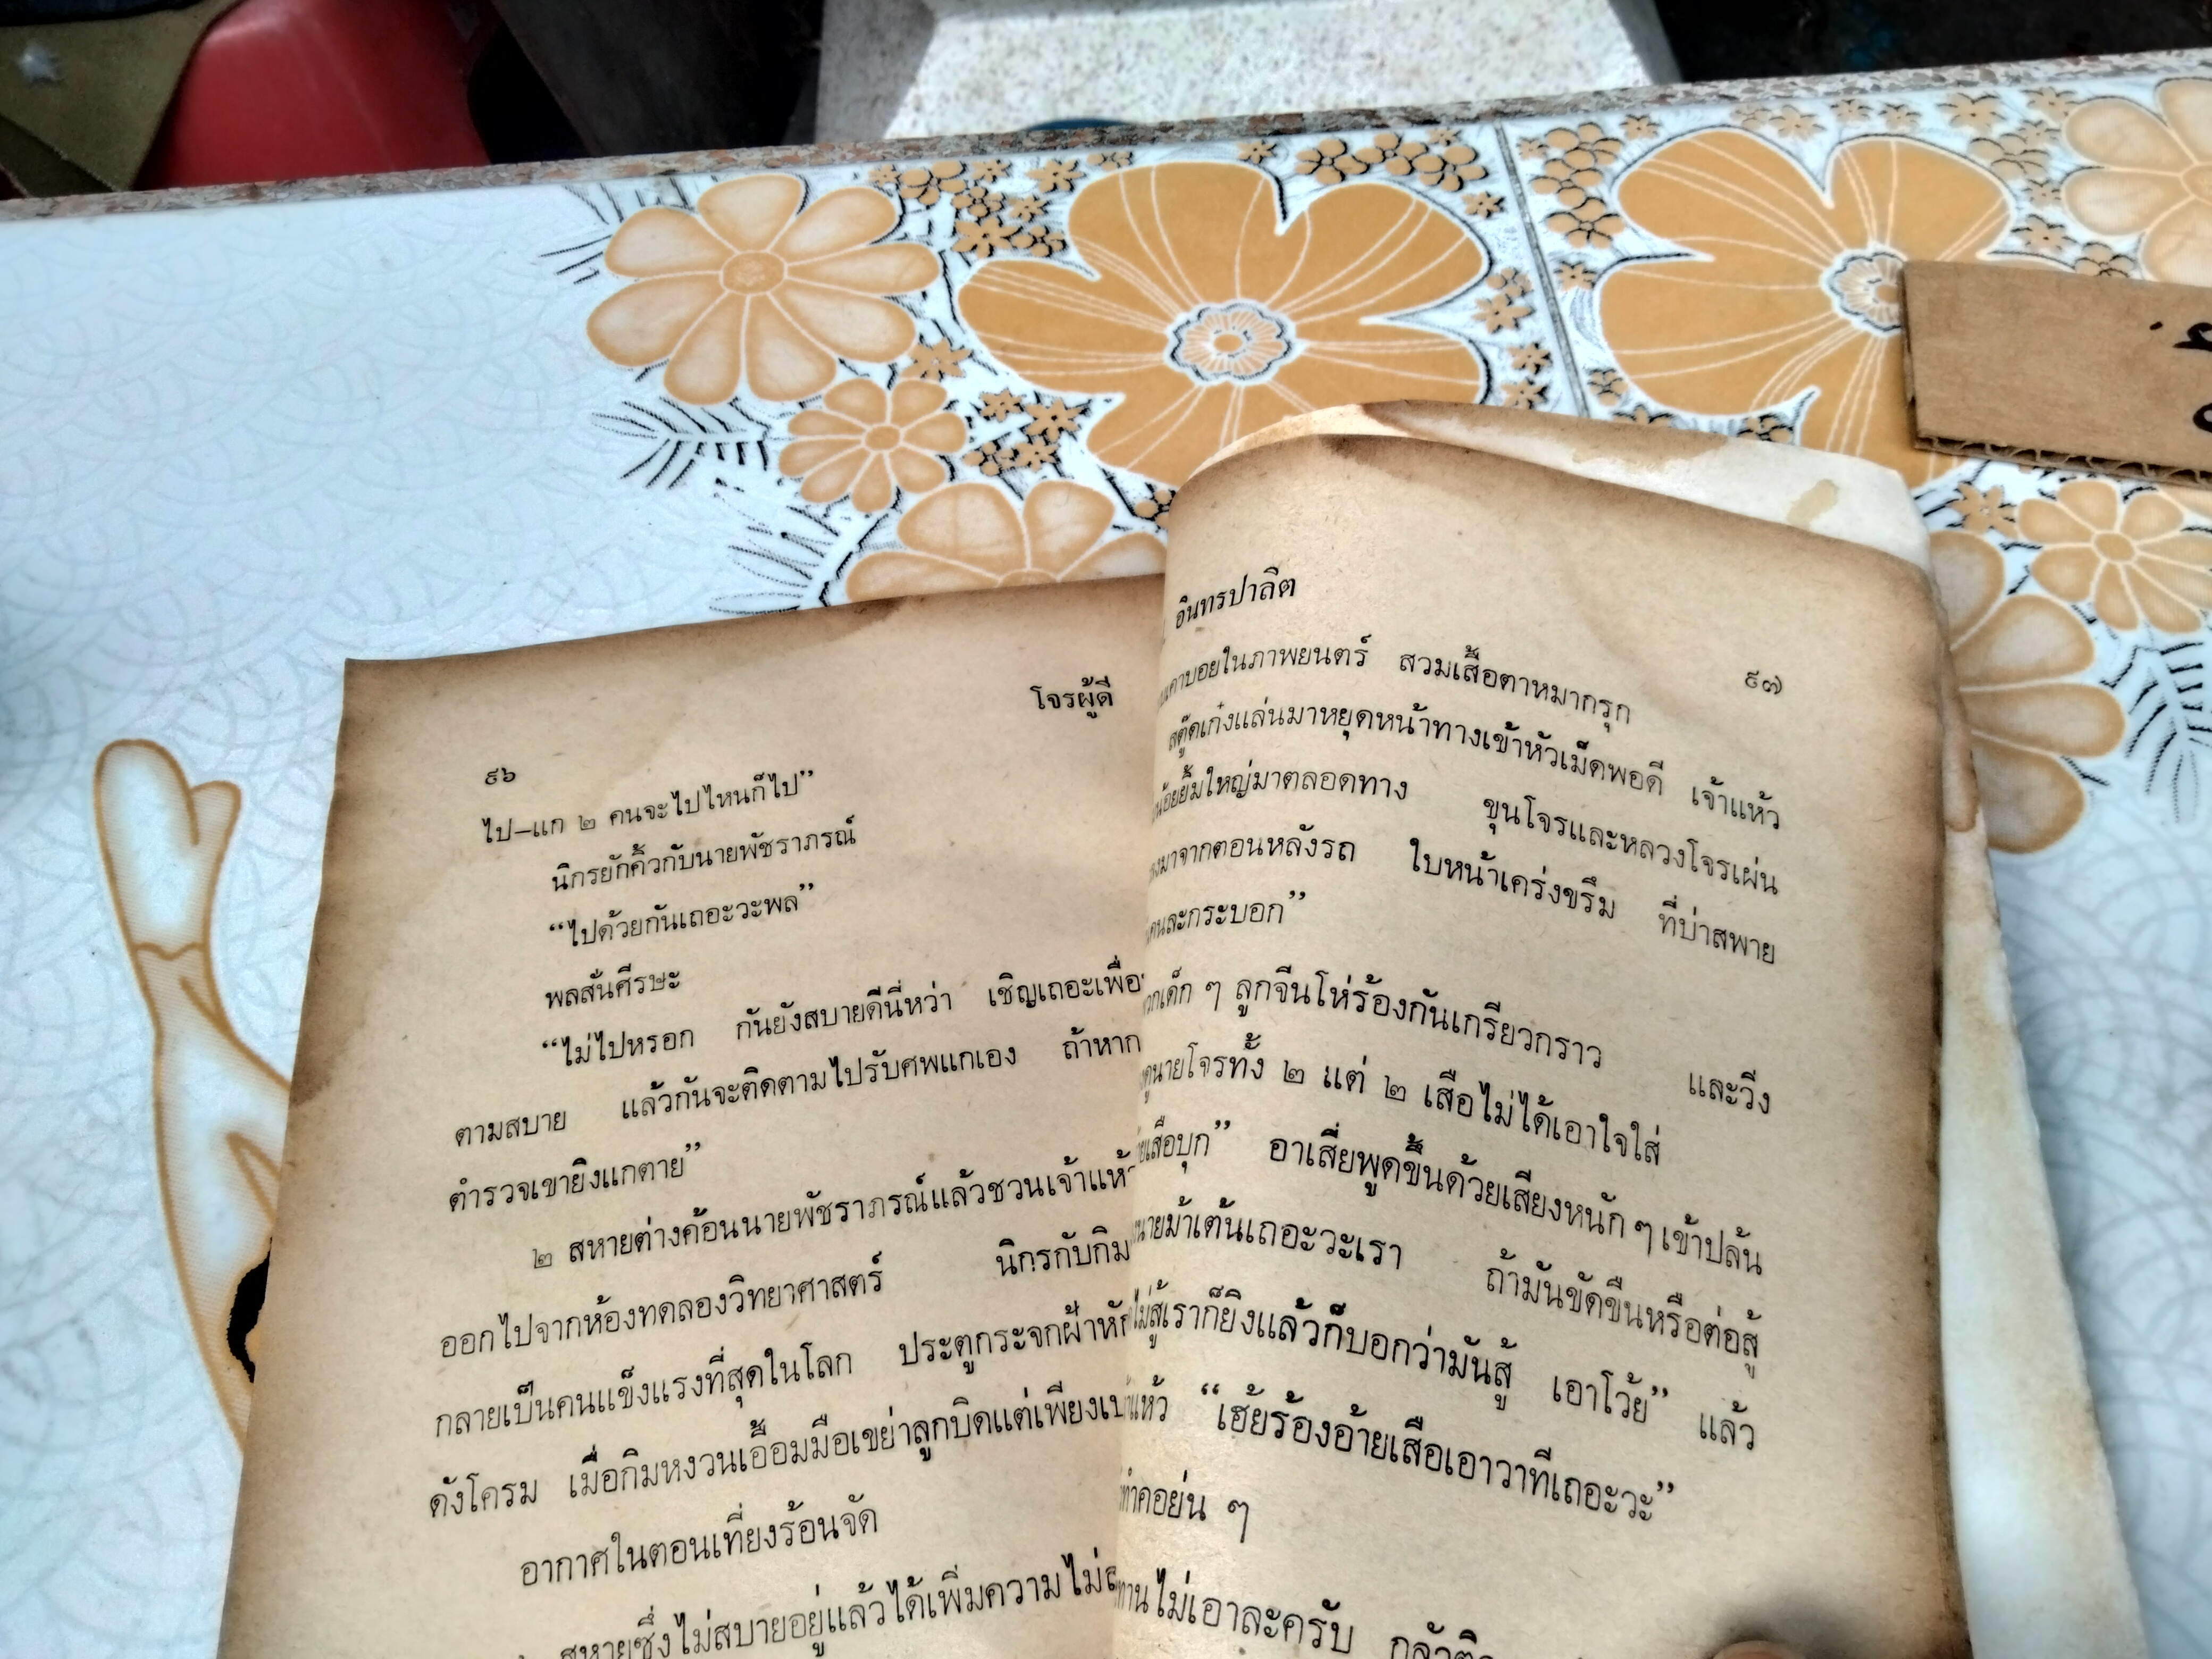 โจรผู้ดี
๙๖
ไป—แก ๒ คนจะไปไหนก็ไป”
นิกรยักคิ้วกับนายพัชราภรณ์
“ไปด้วยกันเถอะวะพล”
พลสั่นศีรษะ
“ไม่ไปหรอก กันยังสบายดีนี่หว่า เชิญเถอะเพื่อ
ตามสบาย แล้วกันจะติดตามไปรับศพแกเอง ถ้าหาก
ตำรวจเขายิงแกตาย”
๒ สหายต่างค้อนนายพัชราภรณ์แล้วชวนเจ้าแห้ว
ออกไปจากห้องทดลองวิทยาศาสตร์ นิกรกับกิม
กลายเป็นคนแข็งแรงที่สุดในโลก ประตูกระจกฝ้าหัก
ดังโครม เมื่อกิมหงวนเอื้อมมือเขย่าลูกบิดแต่เพียงเบา
อากาศในตอนเที่ยงร้อนจัด
สหายซึ่งไม่สบายอยู่แล้วได้เพิ่มความไม่
อินทรปาลิต
๙๗
คาบอยในภาพยนตร์ สวมเสื้อตาหมากรุก
สตู๊ดเก๋งแล่นมาหยุดหน้าทางเข้าหัวเม็ดพอดี เจ้าแห้ว
น้อยยิ้มใหญ่มาตลอดทาง ขุนโจรและหลวงโจรเผ่น
ลงมาจากตอนหลังรถ ใบหน้าเคร่งขรึม ที่บ่าสพาย
คนละกระบอก”
พวกเด็ก ๆ ลูกจีนโห่ร้องกันเกรียวกราว และวิ่ง
ดูนายโจรทั้ง ๒ แต่ ๒ เสือไม่ได้เอาใจใส่
เสือบุก” อาเสี่ยพูดขึ้นด้วยเสียงหนัก ๆ เข้าปล้น
นายม้าเต้นเถอะวะเรา ถ้ามันขัดขืนหรือต่อสู้
ไม่สู้เราก็ยิงแล้วก็บอกว่ามันสู้ เอาโว้ย” แล้ว
แห้ว “เฮ้ยร้องอ้ายเสือเอาวาทีเถอะวะ”
ทำคอย่น ๆ
ทานไม่เอาละครับ